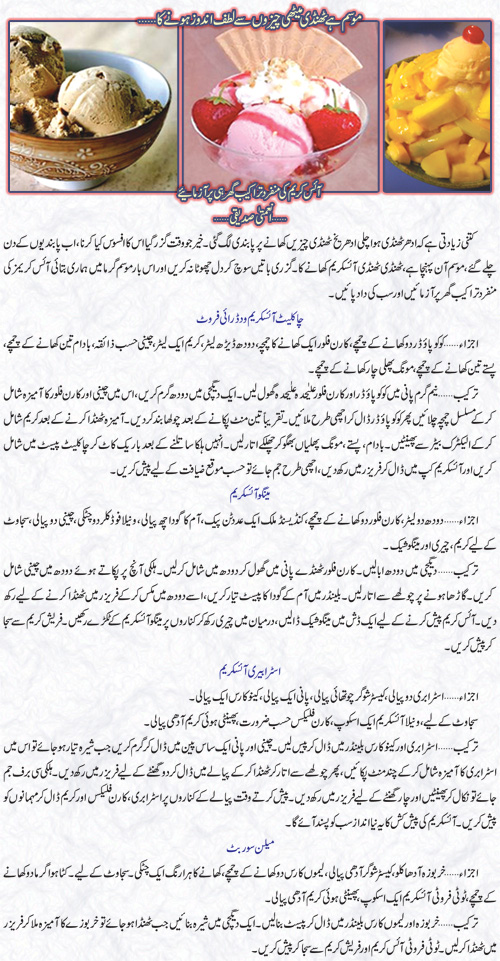 موسم ہے ٹھنڈی میٹھی چیزوں سے لطف اندوز ہونے کا......
آئس کریم کی منفرد تراکیب گھر ہی پر آزمائیے
......نعمیٰ صدیقی......
کتنی زیادتی ہے کہ ادھر ٹھنڈی ہوا چلی ادھر یخ ٹھنڈی چیزیں کھانے پر پابندی لگ گئی۔ خیر جو وقت گزر گیا اس کا افسوس کیا کرنا، اب پابندیوں کے دن
چلے گئے، موسم آن پہنچا ہے، ٹھنڈی ٹھنڈی آئسکریم کھانے کا۔ گزری باتیں سوچ کر دل چھوٹا نہ کریں اور اس بار موسم گرما میں ہماری بتائی آئس کریمز کی
منفرد تراکیب گھر پر آزمائیں اور سب کی داد پائیں۔
چاکلیٹ آئسکریم ود ڈرائی فروٹ
اجزاء......کوکو پاؤڈر دو کھانے کے چمچے، کارن فلور ایک کھانے کا چمچہ، دودھ ڈیڑھ لیٹر، کریم ایک لیٹر، چینی حسب ذائقہ، بادام تین کھانے کے چمچے،
پستے تین کھانے کے چمچے، مونگ پھلی چار کھانے کے چمچے۔
ترکیب......نیم گرم پانی میں کوکو پاؤڈر اور کارن فلور علیحدہ علیحدہ گھول لیں۔ ایک دیگچی میں دودھ گرم کریں، اس میں چینی اور کارن فلور کا آمیزہ شامل
کر کے مسلسل چمچہ چلائیں پھر کوکو پاؤڈر ڈال کر اچھی طرح ملائیں۔ تقریباً تین منٹ پکانے کے بعد چولھا بند کر دیں۔ آمیزہ ٹھنڈا کرنے کے بعد کریم شامل
کر کے الیکٹرک بیٹر سے پھینٹیں۔ بادام، پستے، مونگ پھلیاں بھگو کر چھلکے اتار لیں۔ انہیں ہلکا سا تلنے کے بعد باریک کاٹ کر چاکلیٹ پیسٹ میں شامل
کریں اور آئسکریم کپ میں ڈال کر فریزر میں رکھ دیں، اچھی طرح جم جائے تو حسب موقع ضیافت کے لیے پیش کریں۔
مینگو آئسکریم
اجزاء......دودھ دو لیٹر، کارن فلور دو کھانے کے چمچے، کنڈیسڈ ملک ایک عدد ٹن پیک، آم کا گودا چھ پیالی، ونیلا فوڈ کلر دو چٹکی، چینی دو پیالی، سجاوٹ
کے لیے کریم، چیری اور مینگو شیک۔
ترکیب......دیگچی میں دودھ ابالیں۔ کارن فلور ٹھنڈے پانی میں گھول کر دودھ میں شامل کر لیں۔ ہلکی آنچ پر پکاتے ہوئے دودھ میں چینی شامل
کریں۔ گاڑھا ہونے پر چولھے سے اتار لیں۔ بلینڈر میں آم کے گودا کا پیسٹ تیار کریں، اسے دودھ میں مکس کر کے فریزر میں ٹھنڈا کرنے کے لیے رکھ
دیں۔ آئس کریم پیش کرنے کے لیے ایک ڈش میں مینگو شیک ڈالیں، درمیان میں چیری رکھ کر کناروں پر مینگو آئسکریم کے ٹکڑے رکھیں۔ فریش کریم سے سجا
کر پیش کریں۔
اسٹرابیری آئسکریم
اجزاء......اسٹرابری دو پیالی، کیسٹر شوگر چوتھائی پیالی، پانی ایک پیالی، کینو کا رس ایک پیالی۔
سجاوٹ کے لیے، ونیلا آئسکریم ایک اسکوپ، کارن فلیکس حسب ضرورت، پھینٹی ہوئی کریم آدھی پیالی۔
ترکیب......اسٹرابری اور کینو کا رس بلینڈر میں ڈال کر پیس لیں۔ چینی اور پانی ایک ساس پین میں ڈال کر گرم کریں جب شیرہ تیار ہو جائے تو اس میں
اسٹرابری کا آمیزہ شامل کر کے چند منٹ پکائیں، پھر چولھے سے اتار کر ٹھنڈا کر کے پیالے میں ڈال کر دو گھنٹے کے لیے فریزر میں رکھ دیں۔ ہلکی سی برف جم
جائے تو نکال کر پھینٹیں اور چار گھنٹے کے لیے فریزر میں رکھ دیں۔ پیش کرتے وقت پیالے کے کناروں پر اسٹرابری، کارن فلیکس اور کریم ڈال کر مہمانوں کو
پیش کریں۔ آئسکریم کی پیش کش کا یہ نیا انداز سب کو پسند آئے گا۔
میلن سوربٹ
اجزاء......خربوزہ آدھا کلو، کیسٹر شوگر آدھی پیالی، لیموں کا رس دو کھانے کے چمچے، کھانے کا ہرا رنگ ایک چٹکی۔ سجاوٹ کے لیے۔ کٹا ہوا گرما دو کھانے
کے چمچے، ٹوٹی فروٹی آئسکریم ایک اسکوپ، پھینٹی ہوئی کریم آدھی پیالی۔
ترکیب......خربوزہ اور لیموں کا رس بلینڈر میں ڈال کر پیسٹ بنا لیں۔ ایک دیگچی میں شیرہ بنائیں جب ٹھنڈا ہو جائے تو خربوزے کا آمیزہ ملا کر فریزر
میں ٹھنڈا کر لیں۔ ٹوٹی فروٹی آئس کریم اور فریش کریم سے سجا کر پیش کریں۔